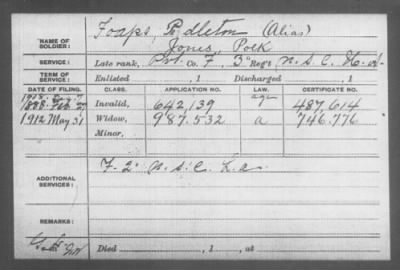 NAME OF SOLDIER: Foaps, Pedleton (Alias)
Jones, Polk
SERVICE: Late rank, Pvt. Co. F, 3" Reg't U.S.C. H. Art
TERM OF SERVICE: Enlisted , 1 Discharged , 1
DATE OF FILING. CLASS. APPLICATION NO. LAW. CERTIFICATE NO.
1888 Invalid, 642,139 age 487,614
1912 May 31 Widow, 987.532 a 746.776
Minor,
ADDITIONAL SERVICES: F-2" U.S.C. L.a.
REMARKS:
Died , 1 , at